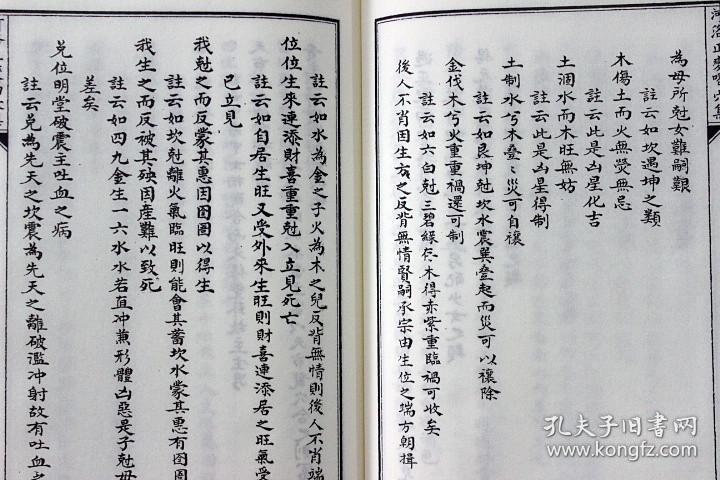 為母所尅女難嗣艱
註云如坎遇坤之類
木傷土而火無熒無忌
註云此是凶星化吉
土涸水而木旺無妨
註云此是凶星得制
土制水兮木疊疊災可自禳
註云如艮坤尅坎水震巽疊起而災可以禳除
金伐木兮火重重禍還可制
註云如六白尅三碧綠存木得赤紫重臨禍可收矣
後人不肖因生方之反背無情賢嗣承宗由生位之端方朝揖
註云如水為金之子火為木之兒反背無情則後人不肖端
位位生來連添財喜重重尅入立見死亡
註云如自居生旺又受外來生旺則財喜連添居之旺氣受
已立見
我尅之而反蒙其惠因囹圄以得生
註云如坎尅離火氣臨旺則能會其蓄坎水蒙其惠有囹圄
我生之而反被其殃因産難以致死
註云如四九金生一六水水若直冲兼形體凶惡是子尅母
差矣
兌位明堂破震主吐血之病
註云兌為先天之坎震為先天之離破濫冲射故有吐血之
孔夫子旧书网
www.kongfz.com